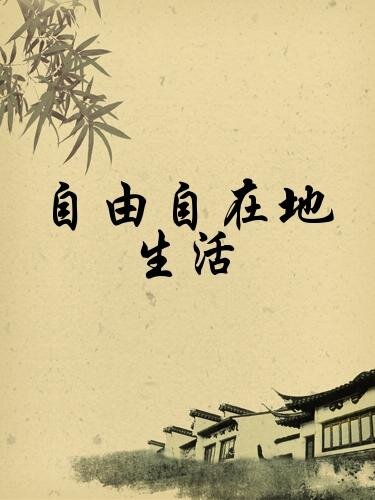 自由自在地
生活